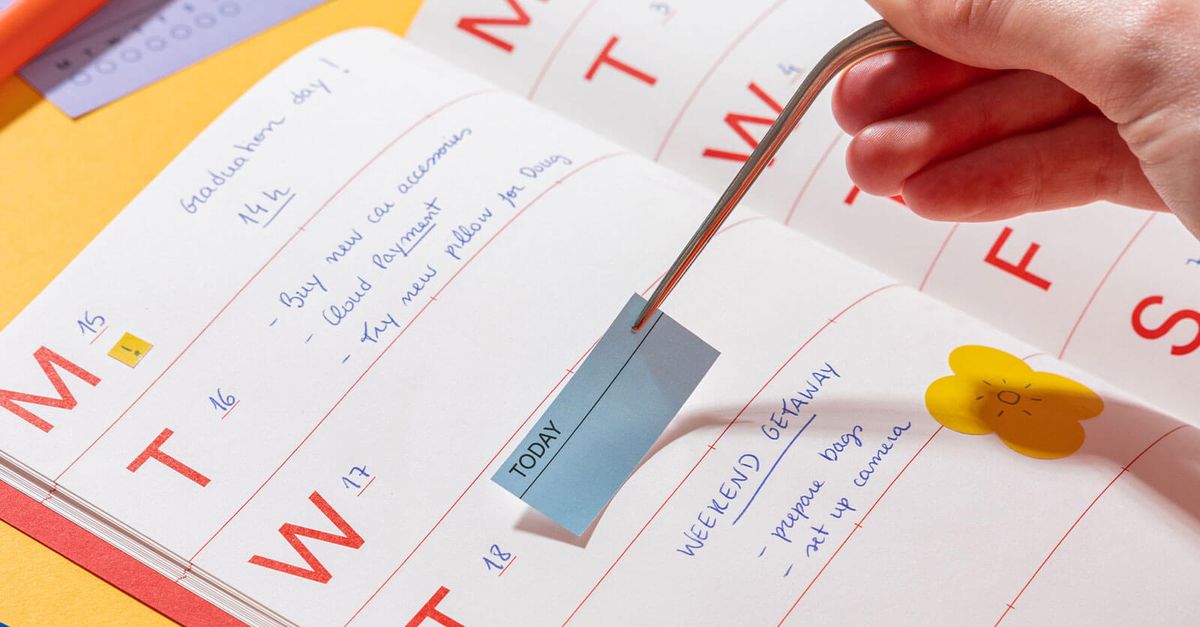 M 15
!
Graduation day !
14h
T 16
- Buy new car accessories
- Cloud Payment
- Try new pillow for Doug
W 17
TODAY
T 18
WEEKEND GETAWAY
- prepare bags
- set up camera
M
T 3
W 4
F
S